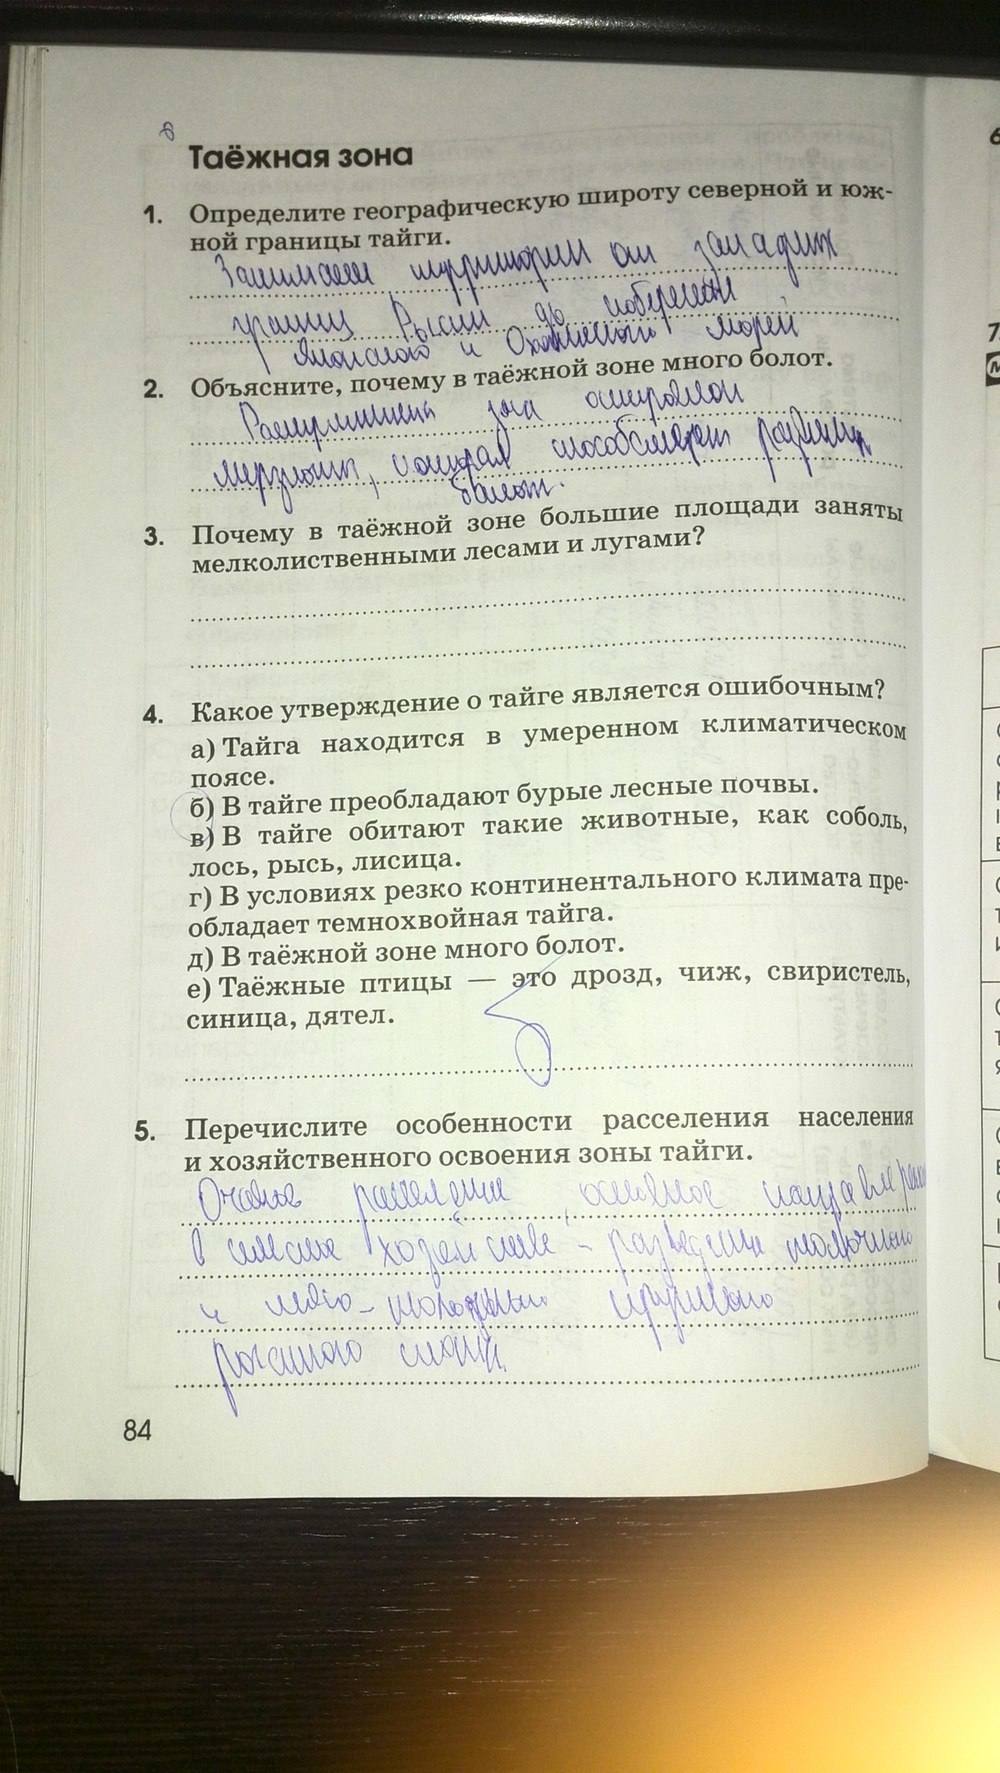 Таёжная зона
1. Определите географическую широту северной и юж-
ной границы тайги.
Занимает территории от западных
границ России до побережий
Японского и Охотского морей
2. Объясните, почему в таёжной зоне много болот.
зона островной
мерзлоты, которая способствует
болот.
3. Почему в таёжной зоне большие площади заняты
мелколиственными лесами и лугами?
4. Какое утверждение о тайге является ошибочным?
а) Тайга находится в умеренном климатическом
поясе.
б) В тайге преобладают бурые лесные почвы.
в) В тайге обитают такие животные, как соболь,
лось, рысь, лисица.
г) В условиях резко континентального климата пре-
обладает темнохвойная тайга.
д) В таёжной зоне много болот.
е) Таёжные птицы — это дрозд, чиж, свиристель,
синица, дятел.
Б
5. Перечислите особенности расселения населения
и хозяйственного освоения зоны тайги.
расселения, основное
в сельском хозяйстве - разведение молочного
и мясо-молочного крупного
рогатого скота
84